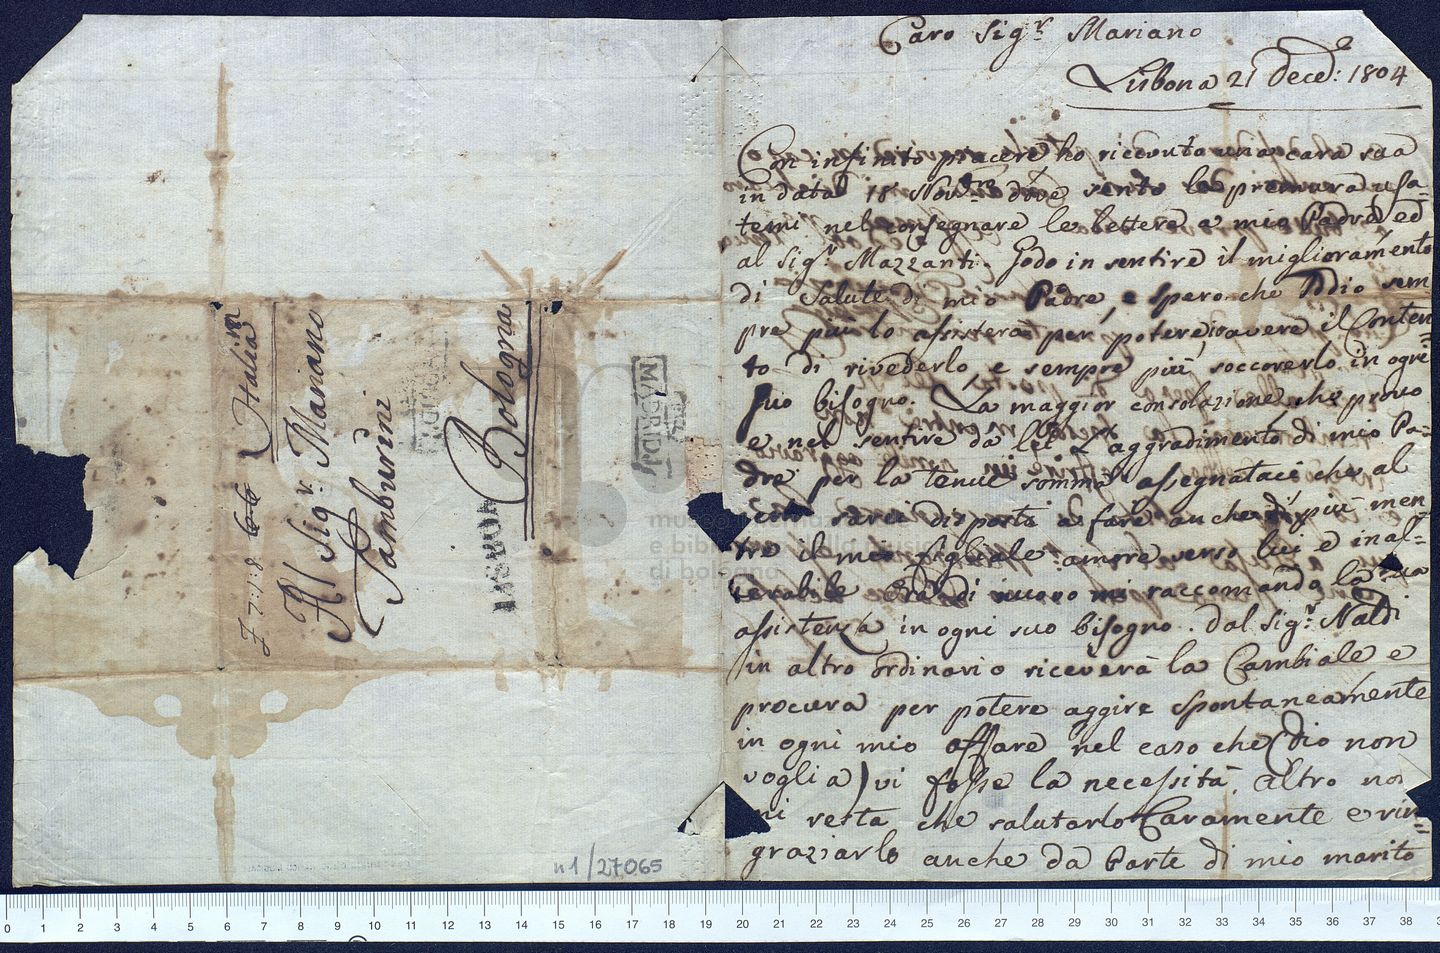 Caro Sig.r Mariano
Lisbona 21 Decē: 1804
Con infinito piacere ho riceuuta una cara sua
in data 18 Nov.bre dove sento la premura usa-
temi nel consegnare le lettere a mio Padre, ed
al Sig.r Mazzanti. Godo in sentire il miglioramento
di Salute di mio Padre, e spero che Iddio sem
pre più lo assisterà per potere io avere il Conten-
to di rivederlo, e sempre più soccorerlo in ogni
suo bisogno. La maggior consolazione che provo
e nel sentire da lei l'aggradimento di mio Pa-
dre per la tenue somma assegnataci che al
sarei disposta a fare anche di più men-
tre il mio figliale amore verso lui è inal-
terabile di nuovo mi raccomando la sua
assistenza in ogni suo bisogno. Dal Sig.r Naldi
in altro ordinario riceverà la Cambiale e
procura per potere aggire spontaneamente
in ogni mio affare nel caso che (Dio non
voglia) vi fosse la necessità. Altro non
mi resta che salutarlo Caramente e rin-
graziarlo anche da parte di mio marito
Italia
Al Sig.r Mariano
Tamburini
Bologna
LISBOA
MADRID
n1/27065
museo internazionale
e biblioteca della musica
di bologna
0 1 2 3 4 5 6 7 8 9 10 11 12 13 14 15 16 17 18 19 20 21 22 23 24 25 26 27 28 29 30 31 32 33 34 35 36 37 38